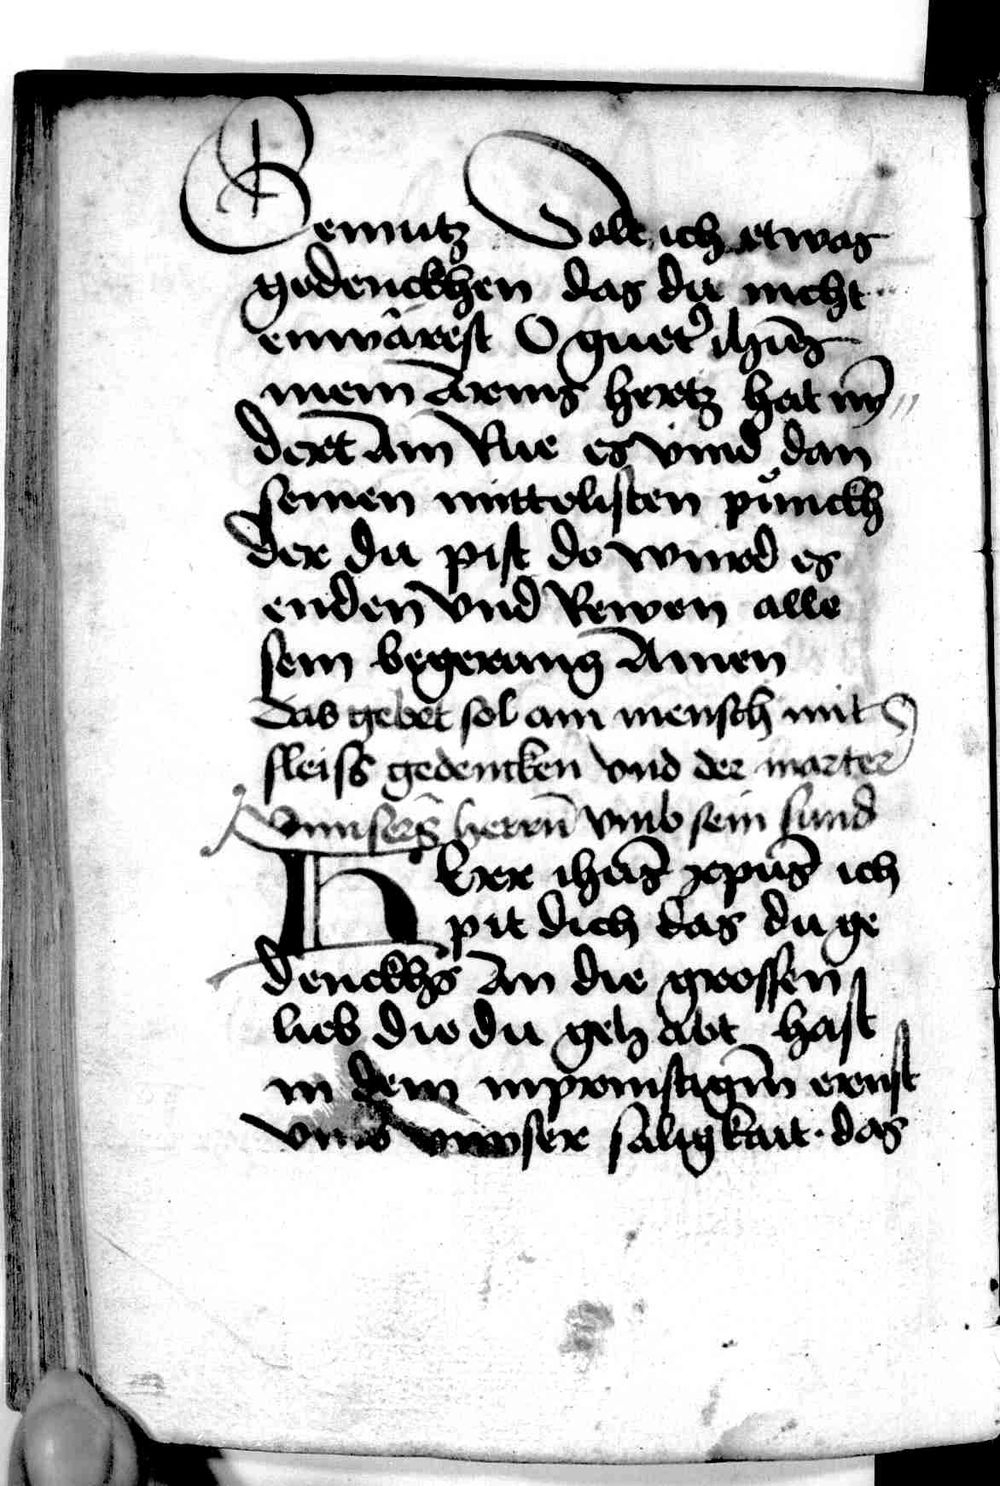 gemutz Solt ich etwas
gedenckhen das du nicht
enwârest O guet' ihûs
mein Arms hertz hat ny
dert Am Rue es vind dan
seinen mittelisten půnckh
der du pist do wurd es
enden vnd Rewen alle
sein begerung Amen
Das gebet sol ain mensch mit
fleiss gedencken vnd der marter
vnnsers herrn vmb sein sund
HErr ihûs xpûs ich
pit dich das du ge
denckhs An die grossen
lieb die du gehabt hast
in dem inprinstigñ ernst
vmb vnnser saligkait · das